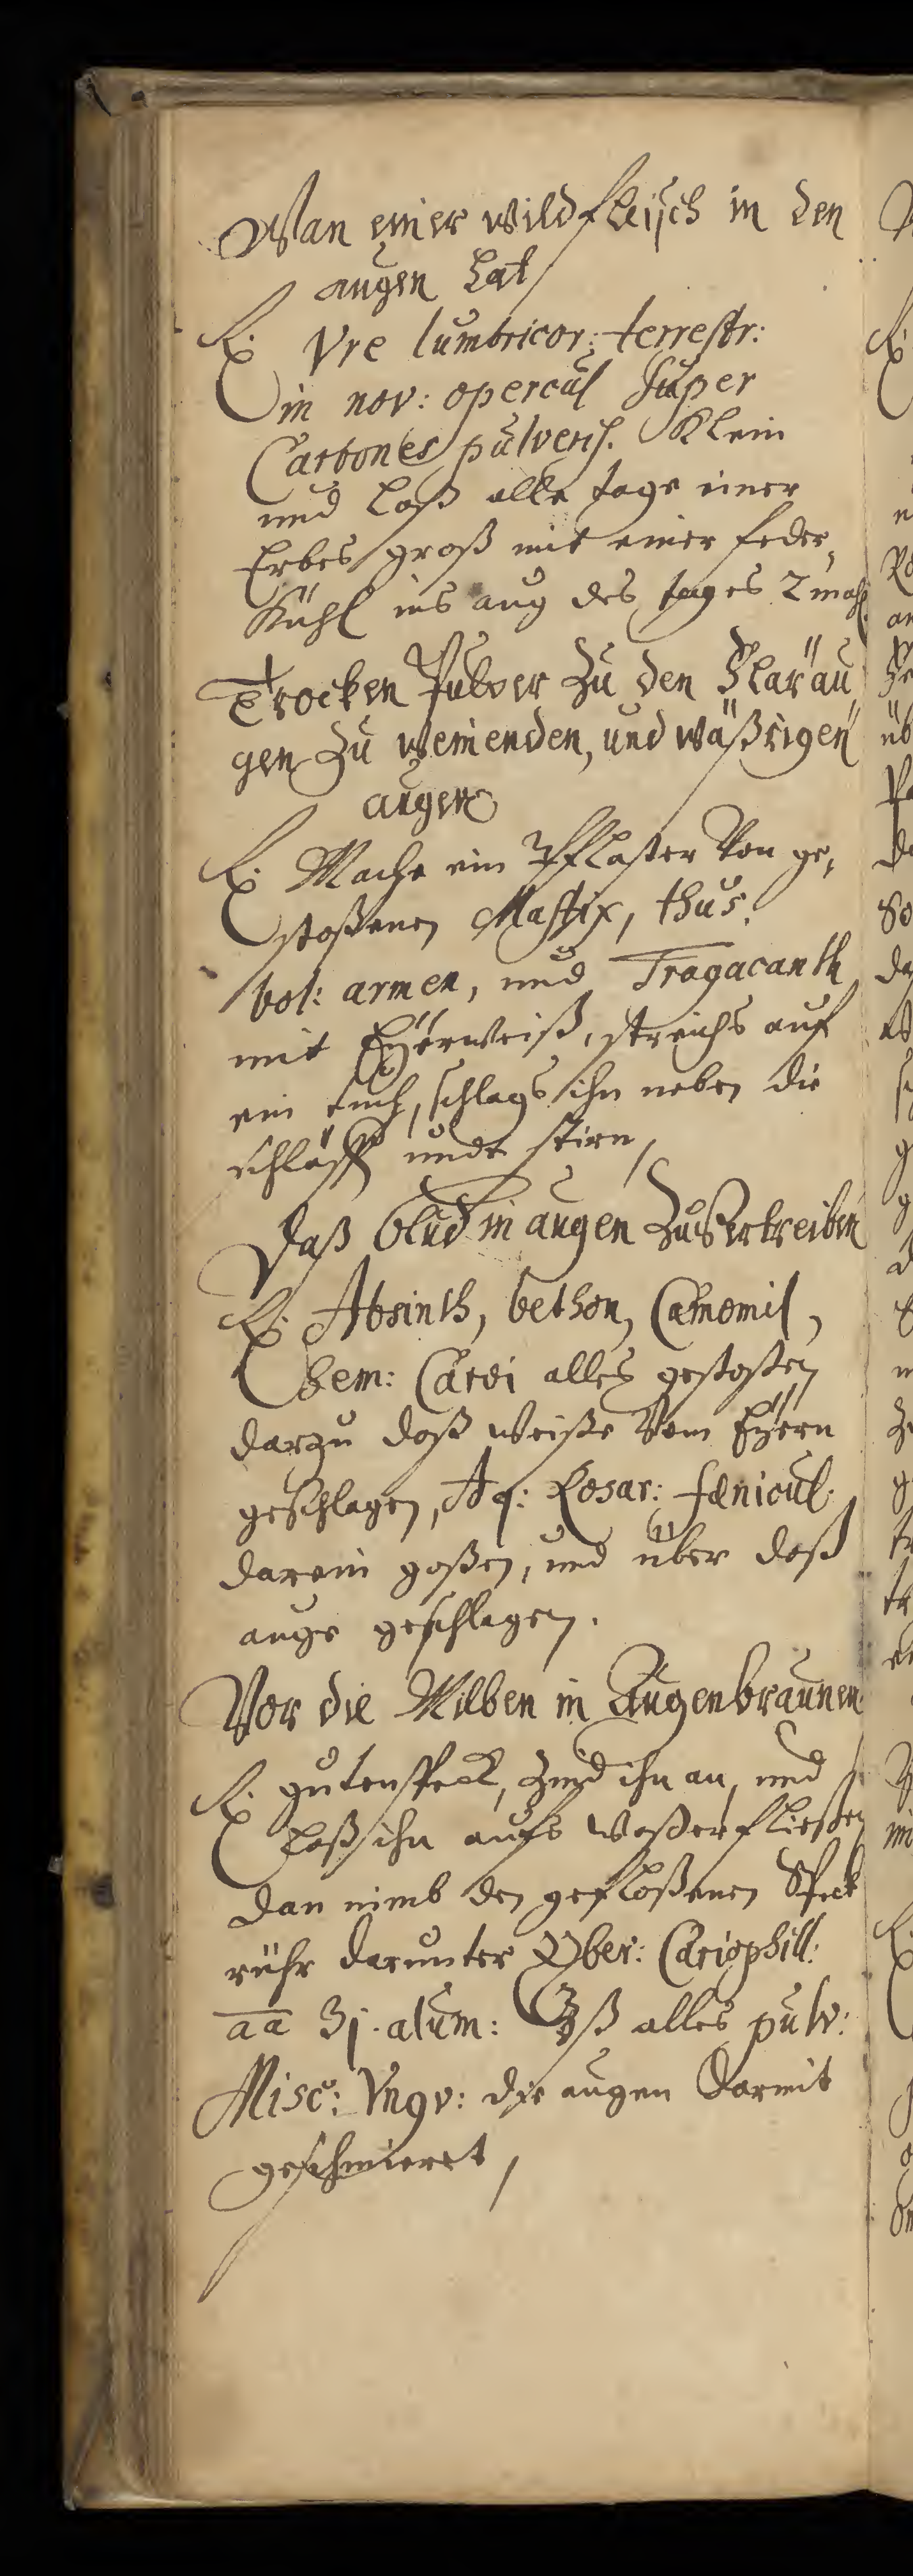 Wan einer wild fleisch in den
augen hat
Rx. Vre lumbricor: terrestr:
in nov: opercul super
Carbones pulveris. Klein
und laß alle tage einer
Erbes groß mit einer feder,
Kühl ins aug des tages 2 mahl
Trocken Pulver zu den
gen zu weinenden, und wäßrigen
augen
Rx. Mache ein Pflaster von ge,
stoßenen Mastix, thus.
bol: armen, und Tragacanth
mit Eÿerweiß, streichs auf
ein tuch, schlags ihn neben die
schläff undt stirn,
Daß blud in augen zu Vertreiben
Rx. Absinth, bethon, Camomil,
Sem: Carvi alles gestoßen
darzu daß weiße vom Eÿern
geschlagen, Aq: Rosar: fænicul.
darein goßen, und über daß
auge geschlagen.
Vor die Milben in Augenbraunen
Rx. guten speck, zünd ihn an, und
laß ihn aufs waßer fließen
dan nimb den gefloßenen Speck
rühr darunter Zyber: Cariophill:
aa ʒj. alum: ʒß alles pulv:
Misc: Vngv: die augen darmit
geschmieret,